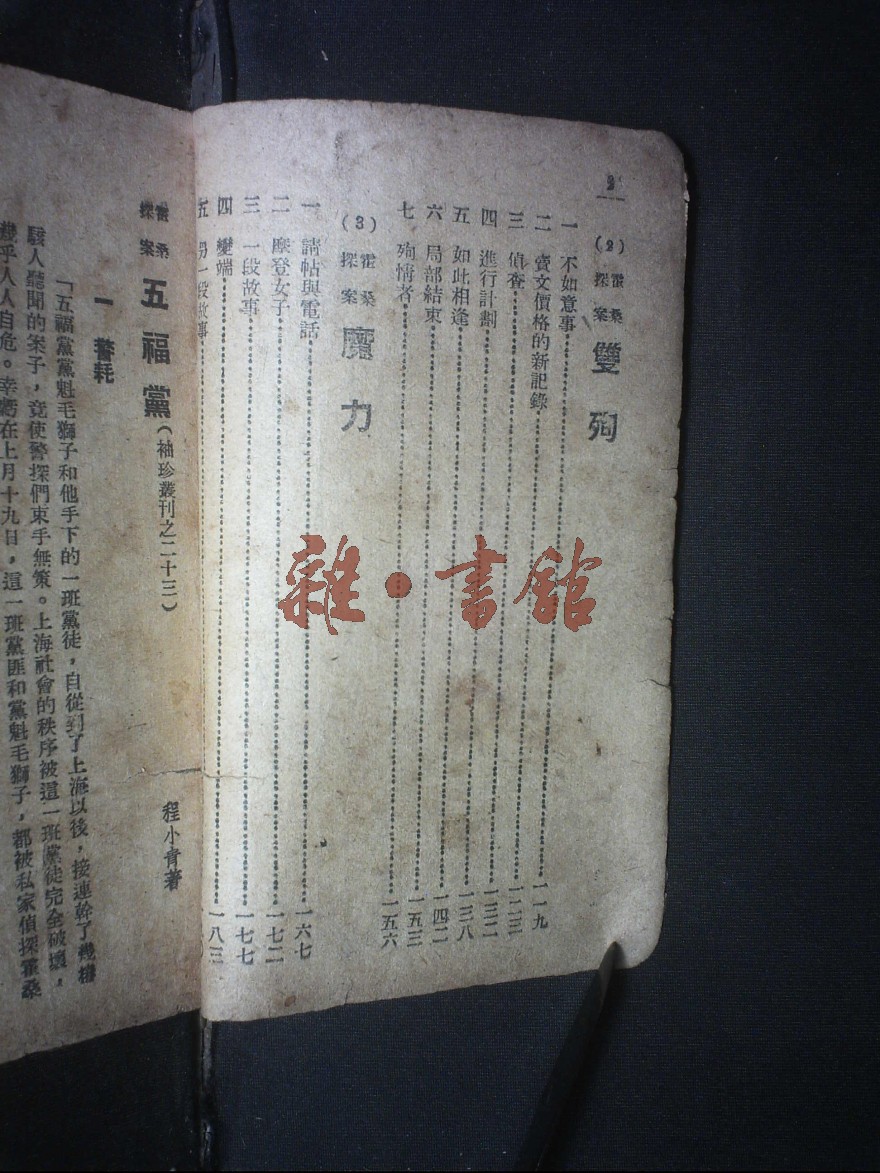 2
(2) 霍桑探案 雙殉
一 不如意事 一一九
二 賣文價格的新記錄 一二三
三 偵查 一三二
四 進行計劃 一三八
五 如此相逢 一四二
六 局部結束 一五三
七 殉情者 一五六
(3) 霍桑探案 魔力
一 請帖與電話 一六七
二 摩登女子 一七二
三 一段故事 一七七
四 變端 一八三
五 另一段故事
霍桑探案 五福黨(袖珍叢刊之二十三) 程小青著
一 警耗
「五福黨黨魁毛獅子和他手下的一班黨徒,自從到了上海以後,接連幹了幾樁
駭人聽聞的案子,竟使警探們束手無策。上海社會的秩序被這一班黨徒完全破壞,
幾乎人人自危。幸虧在上月十九日,這一班黨匪和黨魁毛獅子,都被私家偵探霍桑
雜·書館